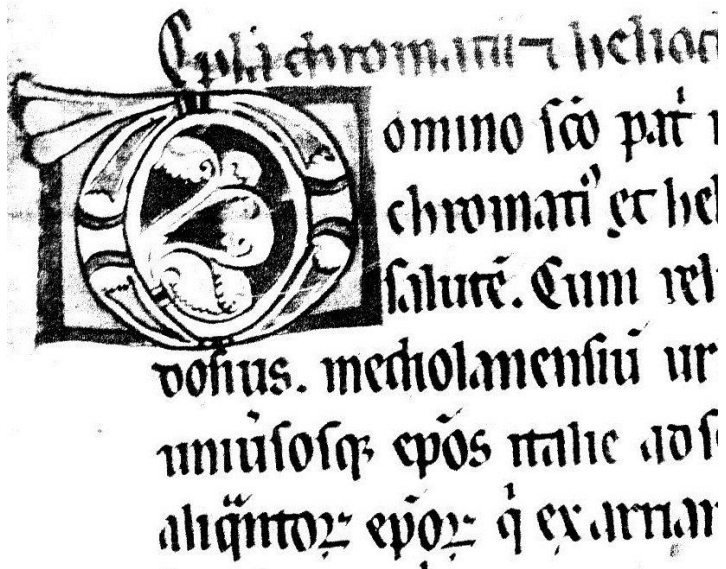 Epl̄a chromatii ⁊ heliod
Domino sc̄o pat̄
chromati᷒ et hel
salutē. Cum reli
dosius. mediolanensiū ur
uniũsosqꝫ ep̄os italie ad s
aliq̈ntoꝝ ep̄oꝝ q̇ ex arrian